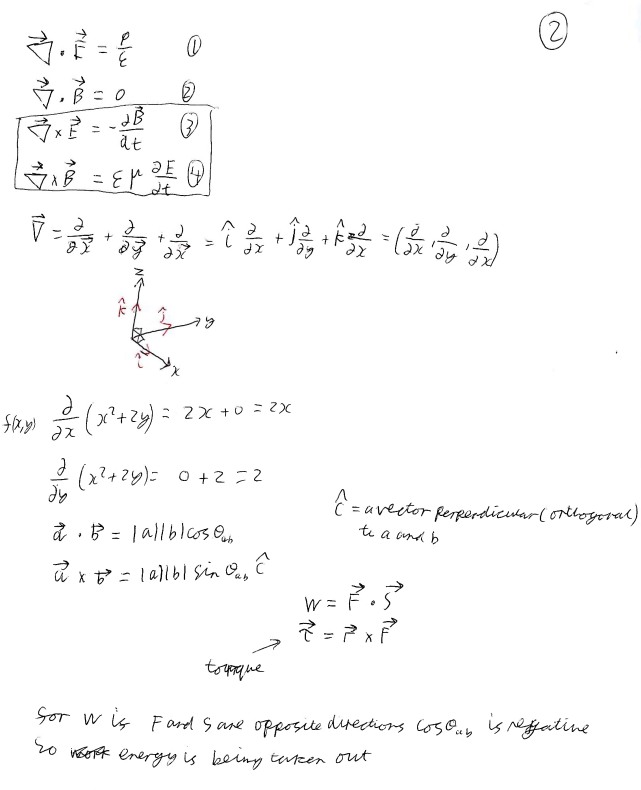 ②
∇⃗ · E⃗ = ρ/ε ①
∇⃗ · B⃗ = 0 ②
∇⃗ × E⃗ = -∂B⃗/∂t ③
∇⃗ × B⃗ = εμ ∂E/∂t ④
∇⃗ = ∂/∂x⃗ + ∂/∂y⃗ + ∂/∂x⃗ = î ∂/∂x + ĵ ∂/∂y + k̂ ∂/∂x = (∂/∂x, ∂/∂y, ∂/∂x)
z
k̂
ĵ
y
î
x
f(x,y) ∂/∂x (x²+2y) = 2x+0 = 2x
∂/∂y (x²+2y) = 0+2 = 2
ĉ = a vector perperdicular (orthogoral)
to a and b
a⃗ · b⃗ = |a||b|cosθab
a⃗ × b⃗ = |a||b| sinθab ĉ
W = F⃗ · S⃗
τ⃗ = r⃗ × F⃗
tourque
for W is F and S are opposite directions cosθab is negative
so energy is being taken out